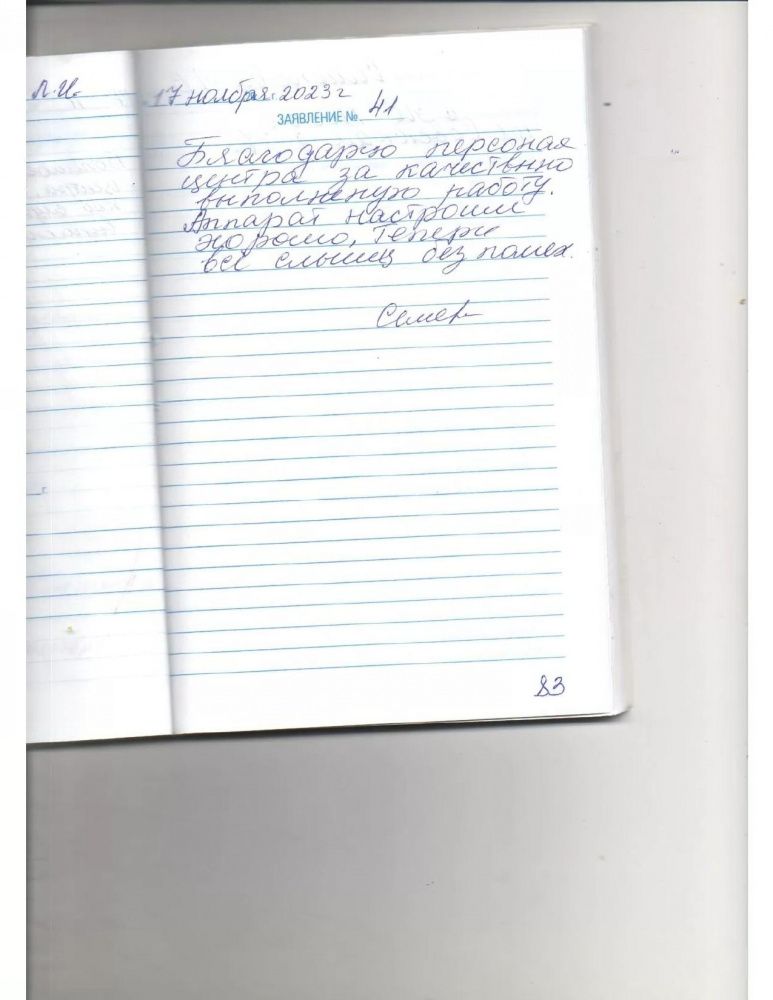 Л.И.
17 ноября 2023 г
ЗАЯВЛЕНИЕ № 41
Благодарю персонал
центра за качествнно
выполненую работу.
Аппарат настроили
хорошо, теперь
все слышу без помех.
83